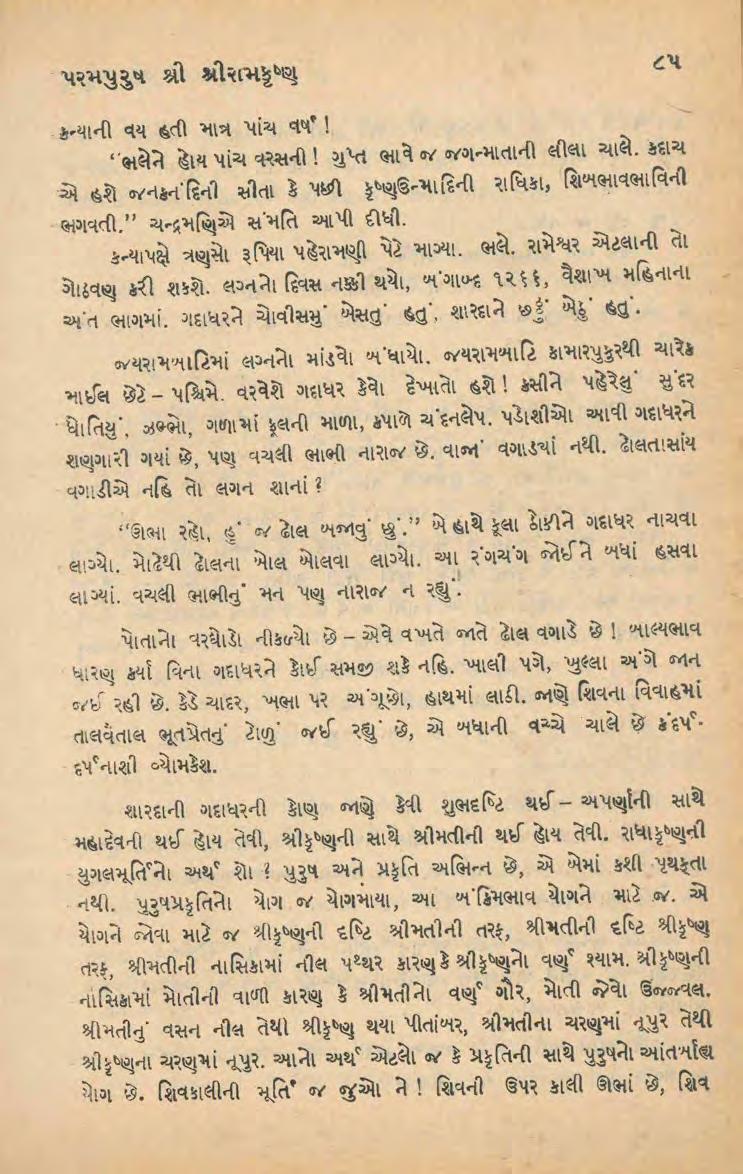 પરમપુરુષ શ્રી શ્રીરામકૃષ્ણ
૮૫
કન્યાની વય હતી માત્ર પાંચ વર્ષ !
“ભલેને હોય પાંચ વરસની ! ગુપ્ત ભાવે જ જગન્માતાની લીલા ચાલે. કદાચ
એ હશે જનકનંદિની સીતા કે પછી કૃષ્ણઉન્માદિની રાધિકા, શિખભાવભાવિની
ભગવતી.” ચન્દ્રમણિએ સંમતિ આપી દીધી.
કન્યાપક્ષે ત્રણસો રૂપિયા પહેરામણી પેટે માગ્યા. ભલે. રામેશ્વર એટલાની તો
ગોઠવણ કરી શકશે. લગ્નનો દિવસ નક્કી થયો, બંગાબ્દ ૧૨૬૬, વૈશાખ મહિનાના
અંત ભાગમાં. ગદાધરને ચોવીસમું બેસતું હતું, શારદાને છઠ્ઠું બેઠું હતું.
જયરામબાટિમાં લગ્નનો માંડવો બંધાયો. જયરામબાટિ કામારપુકુરથી ચારેક
માઈલ છેટે – પશ્ચિમે. વરવેશે ગદાધર કેવો દેખાતો હશે ! કસીને પહેરેલું સુંદર
ધોતિયું, ઝભ્ભો, ગળામાં ફૂલની માળા, કપાળે ચંદનલેપ. પડોશીઓ આવી ગદાધરને
શણગારી ગયાં છે, પણ વચલી ભાભી નારાજ છે. વાજાં વગાડ્યાં નથી. ઢોલતાસાંય
વગાડીએ નહિ તો લગન શાનાં ?
“ઊભા રહો, હું જ ઢોલ બજાવું છું.” બે હાથે કૂલા ઠોકીને ગદાધર નાચવા
લાગ્યો. મોઢેથી ઢોલના બોલ બોલવા લાગ્યો. આ રંગચંગ જોઈને બધાં હસવા
લાગ્યાં. વચલી ભાભીનું મન પણ નારાજ ન રહ્યું.
પોતાનો વરઘોડો નીકળ્યો છે – એવે વખતે જાતે ઢોલ વગાડે છે ! બાલ્યભાવ
ધારણ કર્યા વિના ગદાધરને કોઈ સમજી શકે નહિ. ખાલી પગે, ખુલ્લા અંગે જાન
જઈ રહી છે. કેડે ચાદર, ખભા પર અંગૂછો, હાથમાં લાઠી. જાણે શિવના વિવાહમાં
તાલવૈતાલ ભૂતપ્રેતનું ટોળું જઈ રહ્યું છે, એ બધાની વચ્ચે ચાલે છે કંદર્પ-
દર્પનાશી વ્યોમકેશ.
શારદાની ગદાધરની કોણ જાણે કેવી શુભદૃષ્ટિ થઈ – અપર્ણાની સાથે
મહાદેવની થઈ હોય તેવી, શ્રીકૃષ્ણની સાથે શ્રીમતીની થઈ હોય તેવી. રાધાકૃષ્ણની
યુગલમૂર્તિનો અર્થ શો ? પુરુષ અને પ્રકૃતિ અભિન્ન છે, એ બેમાં કશી પૃથકતા
નથી. પુરુષપ્રકૃતિનો યોગ જ યોગમાયા, આ બંકિમભાવ યોગને માટે જ. એ
યોગને જોવા માટે જ શ્રીકૃષ્ણની દૃષ્ટિ શ્રીમતીની તરફ, શ્રીમતીની દૃષ્ટિ શ્રીકૃષ્ણ
તરફ, શ્રીમતીની નાસિકામાં નીલ પથ્થર કારણ કે શ્રીકૃષ્ણનો વર્ણ શ્યામ. શ્રીકૃષ્ણની
નાસિકામાં મોતીની વાળી કારણ કે શ્રીમતીનો વર્ણ ગૌર, મોતી જેવો ઉજ્જવલ.
શ્રીમતીનું વસન નીલ તેથી શ્રીકૃષ્ણ થયા પીતાંબર, શ્રીમતીના ચરણમાં નૂપુર તેથી
શ્રીકૃષ્ણના ચરણમાં નૂપુર. આનો અર્થ એટલો જ કે પ્રકૃતિની સાથે પુરુષનો આંતર્બાહ્ય
યોગ છે. શિવકાલીની મૂર્તિ જ જુઓ ને ! શિવની ઉપર કાલી ઊભાં છે, શિવ